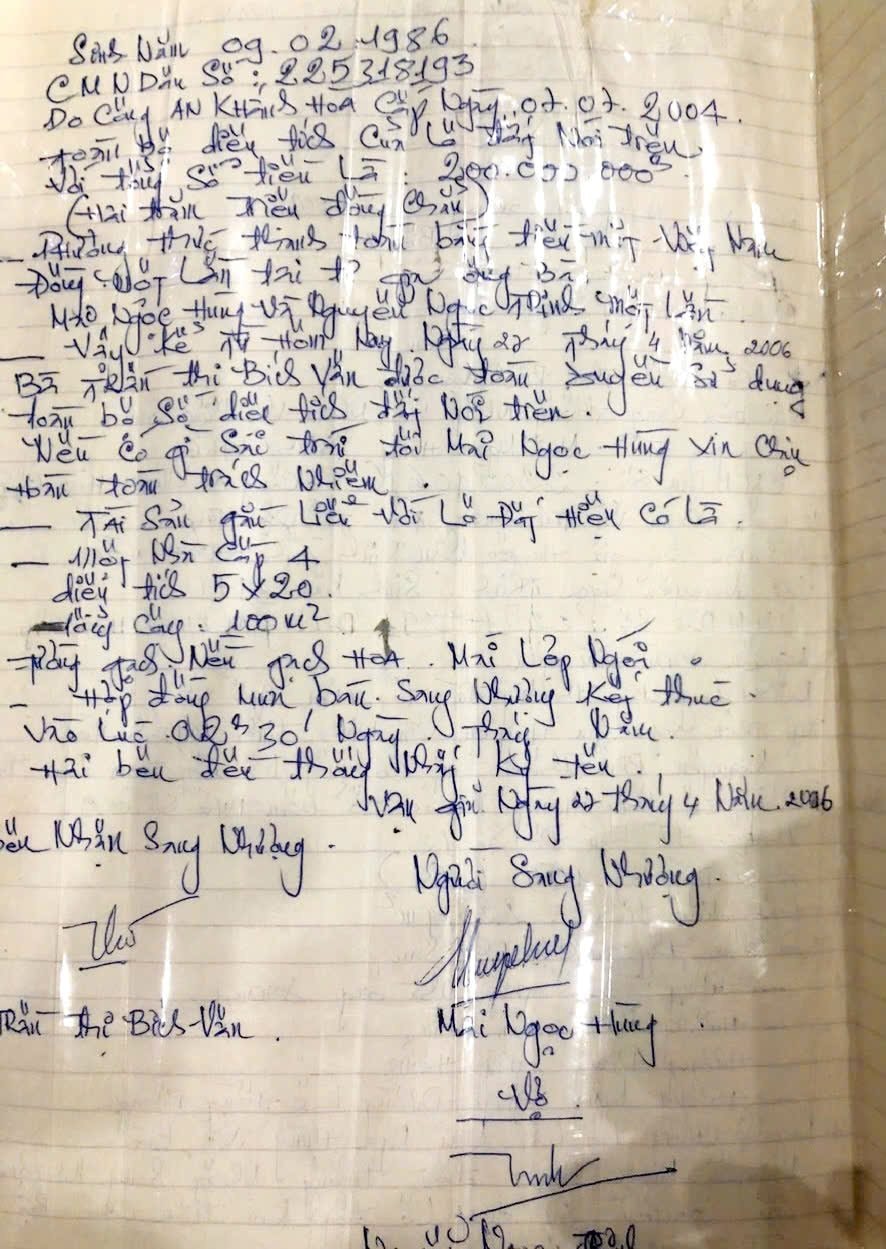 Sinh Năm 09.02.1986.
CMNDân Số: 225318193
Do Công AN Khánh Hoà Cấp Ngày 07.07.2004.
toàn bộ diện tích Của Lô đất Nói trên,
Với tổng Số tiền Là: 200.000.000đ
(Hai trăm triệu đồng Chẵn)
– Phương thức thanh toán bằng tiền mặt Việt Nam
Đồng Một Lần tại gia ông Bà.
Mai Ngọc Hùng Và Nguyễn Ngọc Trinh một Lần.
– Vậy Kể Từ Hôm Nay Ngày 22 Tháng 4 Năm 2006
Bà Trần thị Bích Vân được toàn quyền Sử dụng
toàn bộ Số diện tích đất Nói trên.
Nếu Có gì Sai trái tôi Mai Ngọc Hùng Xin Chịu
Hoàn toàn trách Nhiệm.
– TÀi Sản gắn Liền Với Lô Đất Hiện Có Là.
– Một Nhà Cấp 4
diện tích 5x20.
– Tổng Cộng: 100m2
– gạch Nền gạch HoA. Mái Lợp Ngói.
– Hợp đồng Mua bán. Sang Nhượng Kết thúc.
Vào Lúc 30' Ngày Tháng Năm.
Hai bên đến thống Nhất Ký tên.
Vạn giã Ngày 22 tháng 4 Năm. 2006
bên Nhận Sang Nhượng.
Người Sang Nhượng.
Trần thị Bích Vân.
Mai Ngọc Hùng.
Vợ.